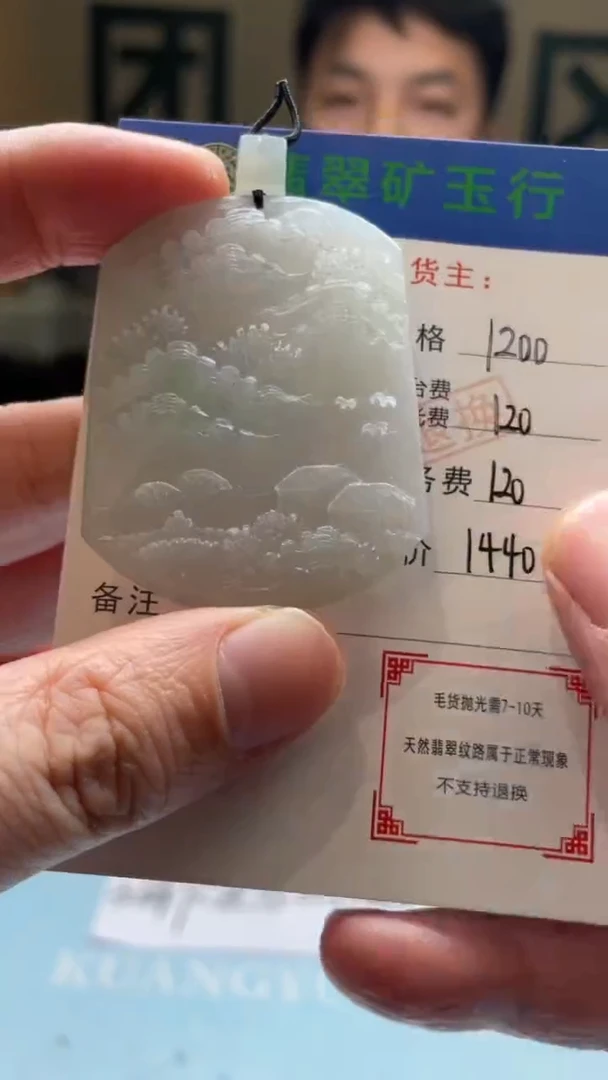 团
翡翠矿玉行
货主：
格 1200
台费 120
务费 120
价 1440
备注
毛货抛光需7-10天
天然翡翠纹路属于正常现象
不支持退换
KUANGYU